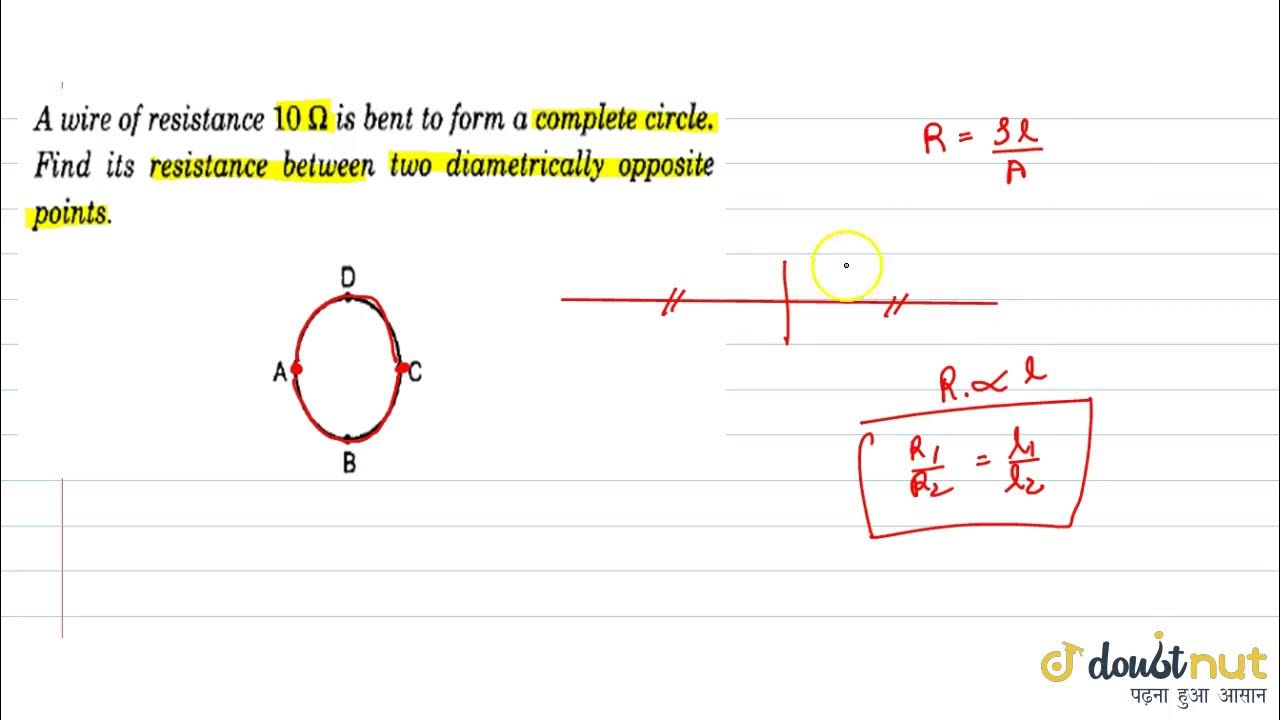 A wire of resistance 10 Ω is bent to form a complete circle.
Find its resistance between two diametrically opposite
points.
D
A
C
B
R = ρl
A
R. ∝ l
R1 = l1
R2 l2
doubtnut
पढ़ना हुआ आसान